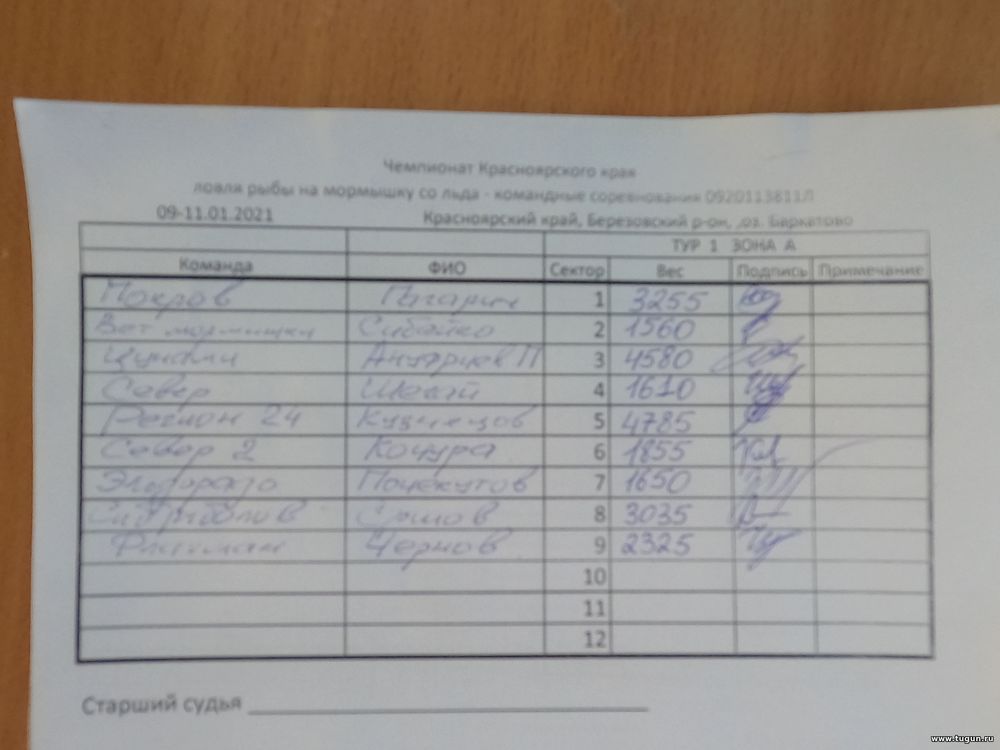 Чемпионат Красноярского края
ловля рыбы на мормышку со льда - командные соревнования 0920113811Л
09-11.01.2021 Красноярский край, Березовский р-он, оз. Баркатово
ТУР 1 ЗОНА А
Команда ФИО Сектор Вес Подпись Примечание
Покров Гагарин 1 3255
Вот мормышки 2 1560
3 4580
Север 4 1610
Регион 24 Кузнецов 5 4785
Север 2 Кочура 6 1855
Эльдорадо Почекутов 7 1650
8 3035
Фишман Чернов 9 2325
10
11
12
Старший судья
www.tugun.ru